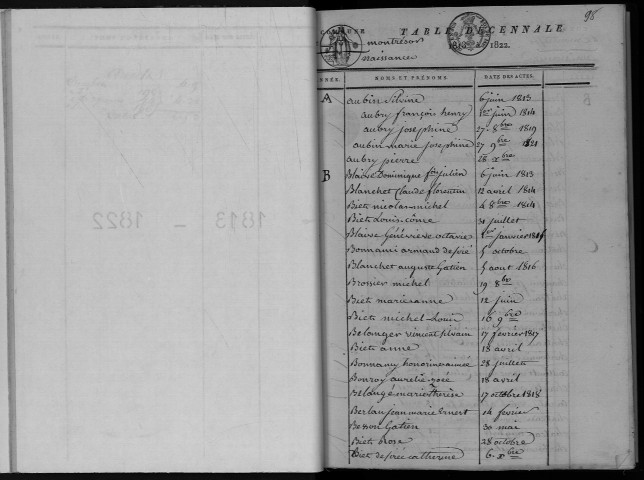 98
COMMUNE TABLE DÉCENNALE
montrésor 1813 à 1822.
naissances
NOMS ET PRÉNOMS. DATE DES ACTES.
A aubin Silvine 6 juin 1813
aubry françois henry 1er juin 1814
aubry josephine 27. 8bre 1819
aubin marie josephine 27 9bre 1821
aubry pierre 28 xbre
B Blaise Dominique fçois julien 6 juin 1813
Blanchet Claude florentin 12 avril 1814
Biet nicolas michel 4 8bre 1814
Biet Louis côme 31 juillet
Blaise Géneviève octavie 1er janvier 1815
Bonnami armand desiré 5 octobre
Blanchet auguste Gatien 5 aout 1816
Brosier michel 19 8bre
Biet marie anne 12 juin
Biet michel Louis 16 9bre
Belanger vincent silvain 17 février 1817
Biet anne 18 avril
Bonnamy honorine aimée 28 juillet
Bonroy aurelie rose 18 avril
Belangé marie thérèse 17 octobre 1818
Berlan jean marie Ernest 14 fevrier
Besson Gatien 30 mai
Biet Rose 28 octobre
Biet desirée catherine 6. xbre
1813 – 1822